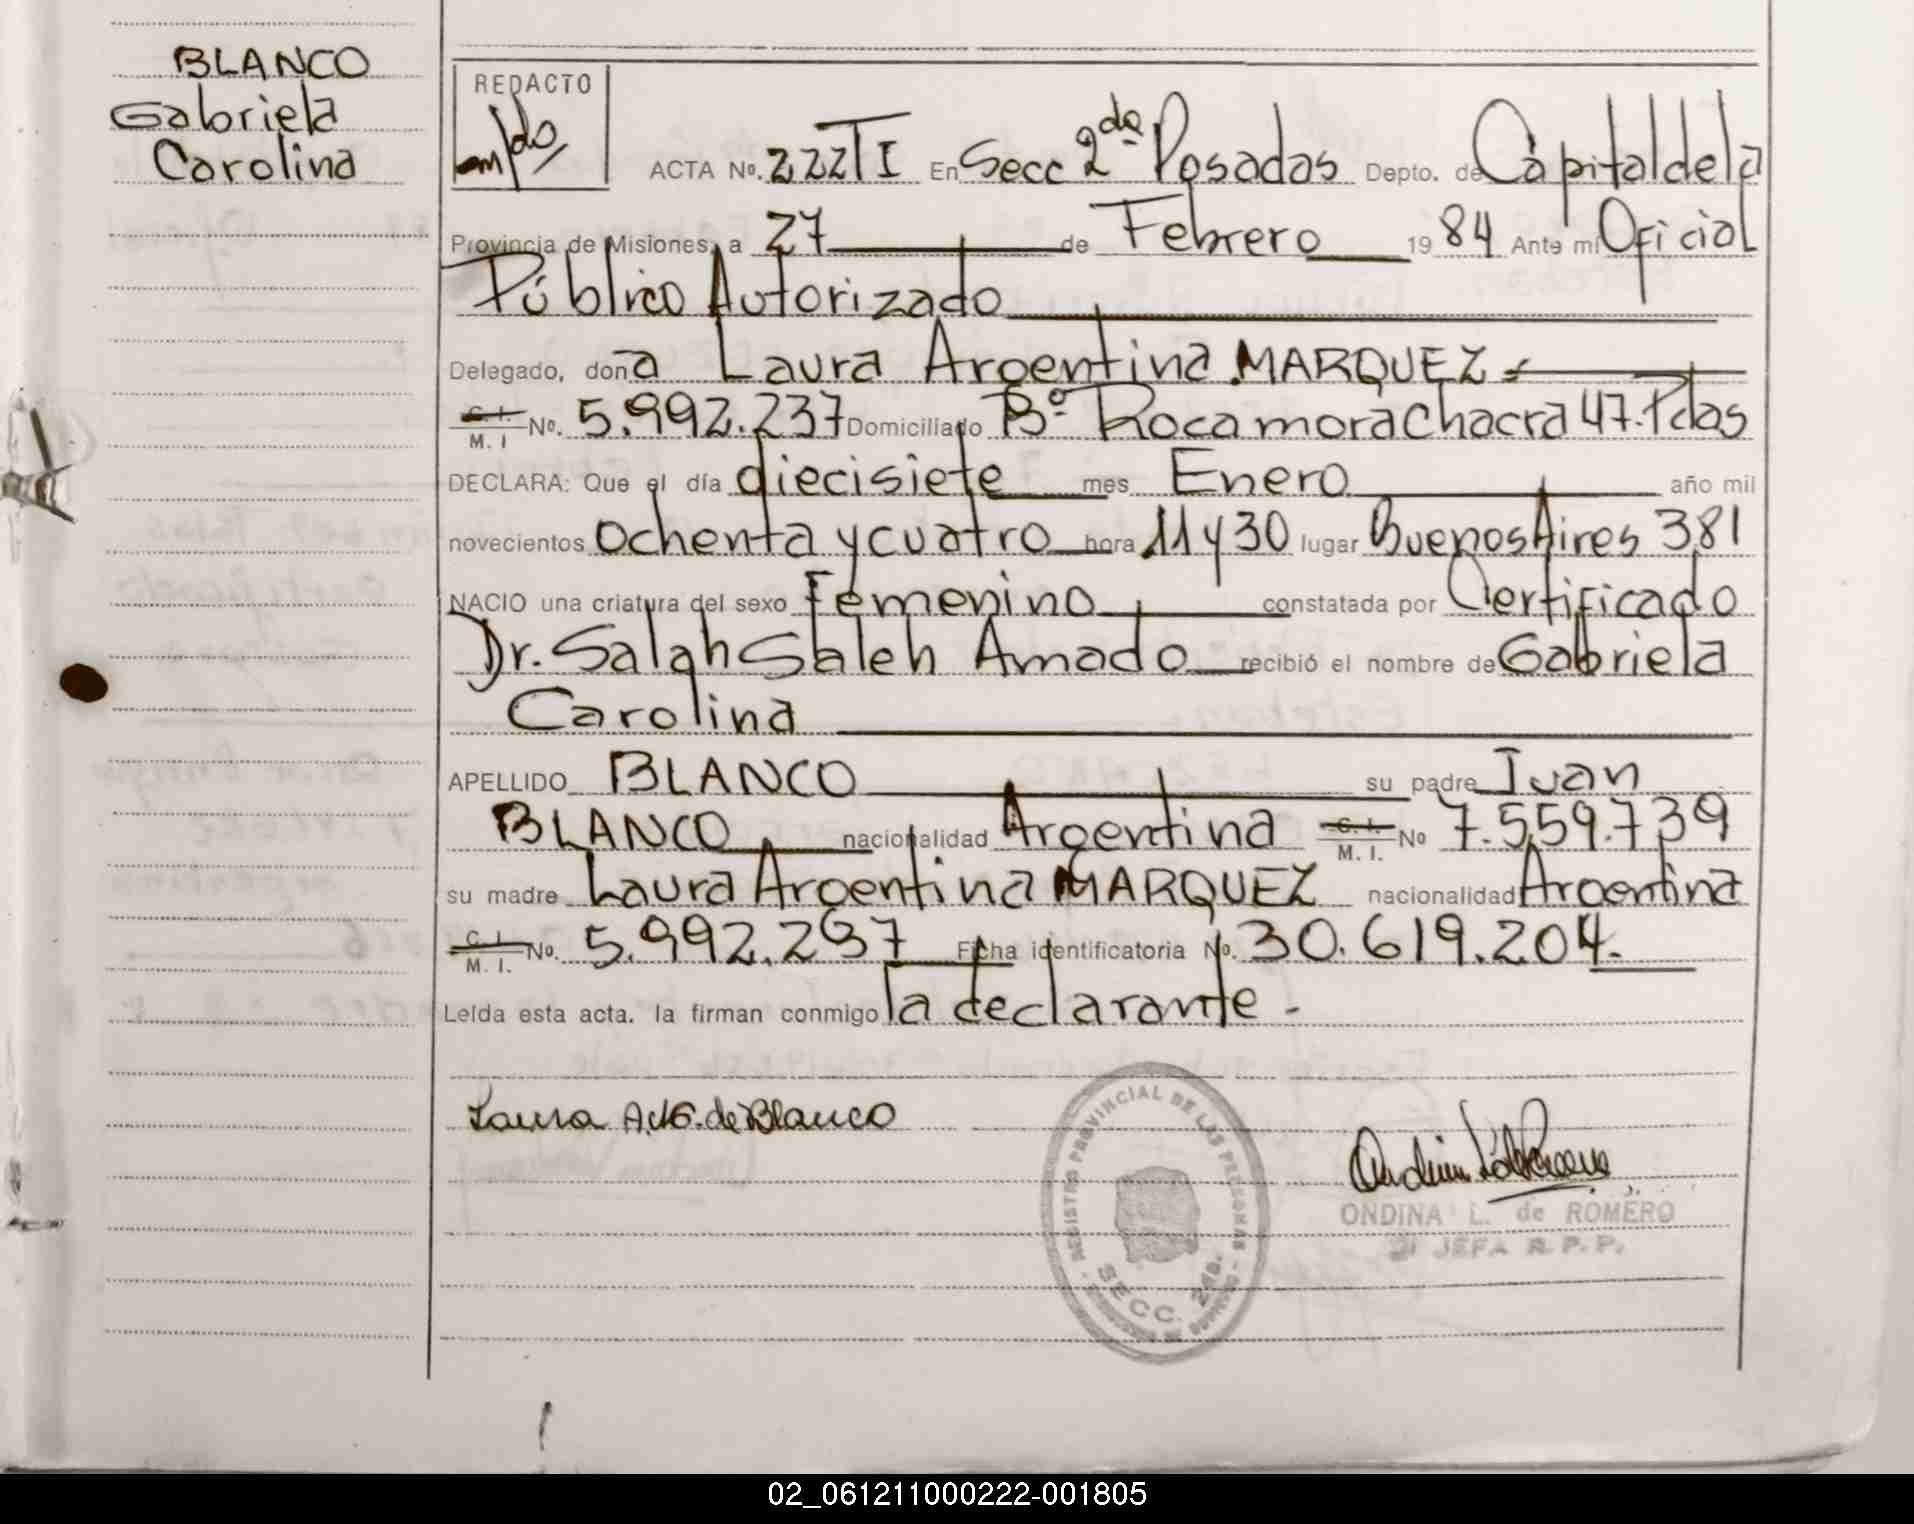 BLANCO
Gabriela
Carolina
REDACTO
ACTA No. 222TI En Secc 2da Posadas Depto. de Capital de la
Provincia de Misiones, a 27 de Febrero 1984 Ante mi Oficial
Público Autorizado
Delegado, dona Laura Argentina MARQUEZ
C. I. M. I No. 5.992.237 Domiciliado Bº Rocamora Chacra 47. Pdas
DECLARA: Que el día diecisiete mes Enero año mil
novecientos ochenta y cuatro hora 11 y 30 lugar Buenos Aires 381
NACIO una criatura del sexo Femenino constatada por Certificado
Dr. Salah Saleh Amado recibió el nombre de Gabriela
Carolina
APELLIDO BLANCO su padre Juan
BLANCO nacionalidad Argentina C. I. M. I. No 7.559.739
su madre Laura Argentina MARQUEZ nacionalidad Argentina
C. I. M. I. No. 5.992.237 Ficha identificatoria No. 30.619.204.
Leída esta acta. la firman conmigo la declarante -
Laura A. M. de Blanco
REGISTRO PROVINCIAL DE LAS PERSONAS
SECC. 2da.
ONDINA L. de ROMERO
JEFA R. P. P.
02_061211000222-001805